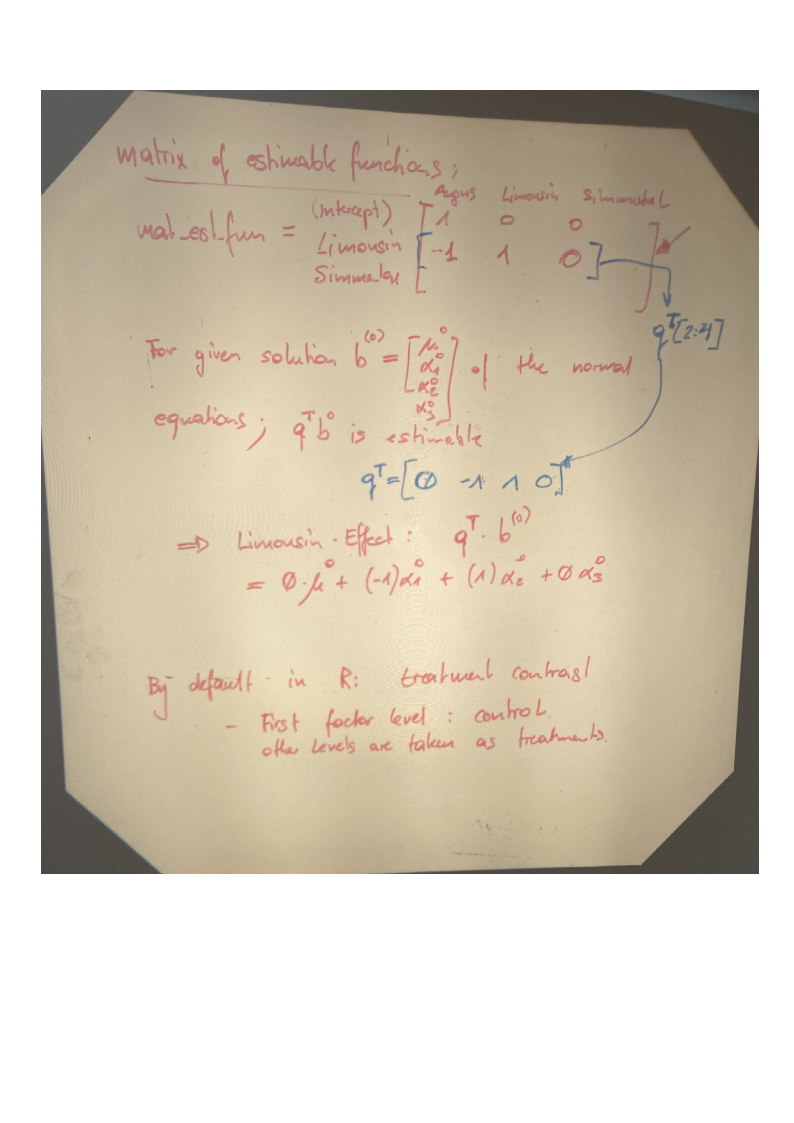 matrix of estimable functions;
Angus Limousin Simmental
mat_est_fun = (Intercept) [ 1 0 0
Limousin [ -1 1 0 ]
Simmental [ ]
q^T[2:4]
For given solution b^(0) = [ μ^0 α_1^0 α_2^0 α_3^0 ] of the normal
equations; q^T b^0 is estimable
q^T = [ 0 -1 1 0 ]
⇒ Limousin-Effect: q^T · b^(0)
= 0·μ^0 + (-1)α_1^0 + (1)α_2^0 + 0 α_3^0
By default in R: treatment contrast
- First factor level: control.
other levels are taken as treatments.